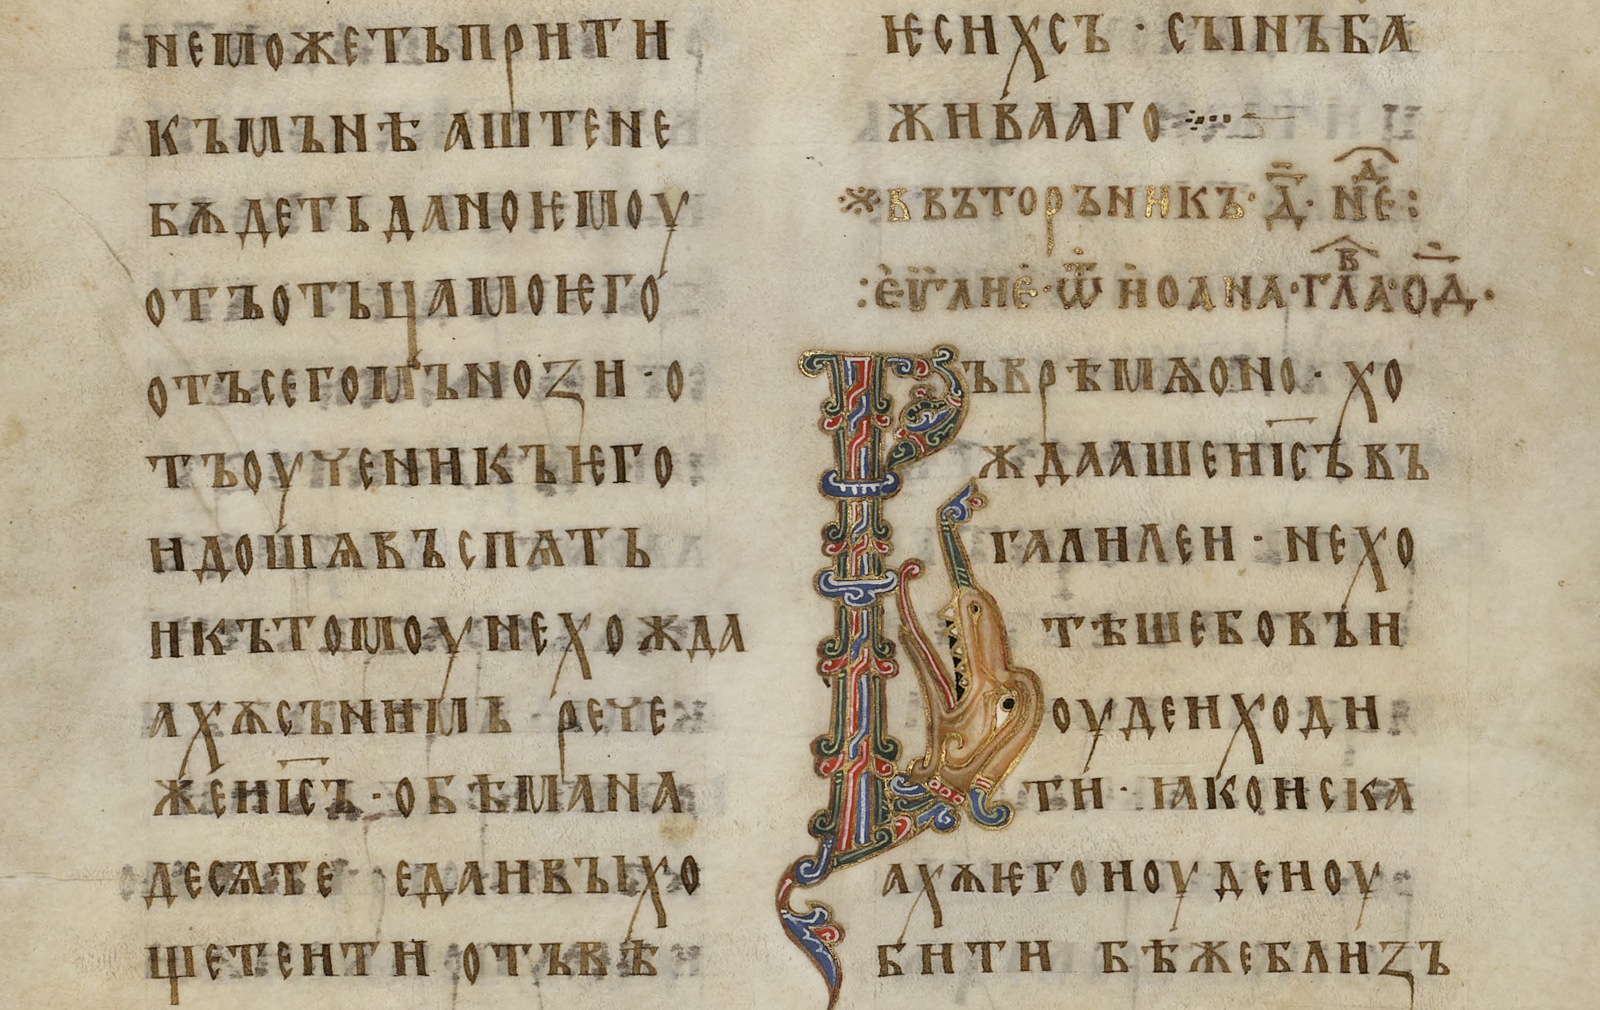 не можетъ прити
къ мънѣ аште не
бѫдеть дано ѥмоу
отъ отьца моѥго
отъ сего мънози · о
тъ оученикъ ѥго
идошѧ въспѧть
и къ томоу не хожда
ахѫ съ нимь рече
же иі҃съ · обѣма на
десѧте еда и вы хо
щете ити отъвѣ
ѥси х҃съ · сынъ б҃а
живааго
въ въторьникъ · д҃ · нед :
: еѵ҃лие · ѿ иоана · глава о҃д ·
Въ врѣмѧ оно · хо
ждааше иі҃съ въ
галилеи · не хо
тѣше бо въ и
оудеи ходи
ти · ꙗко иска
ахѫ ѥго июдеи оу
бити бѣ же близъ